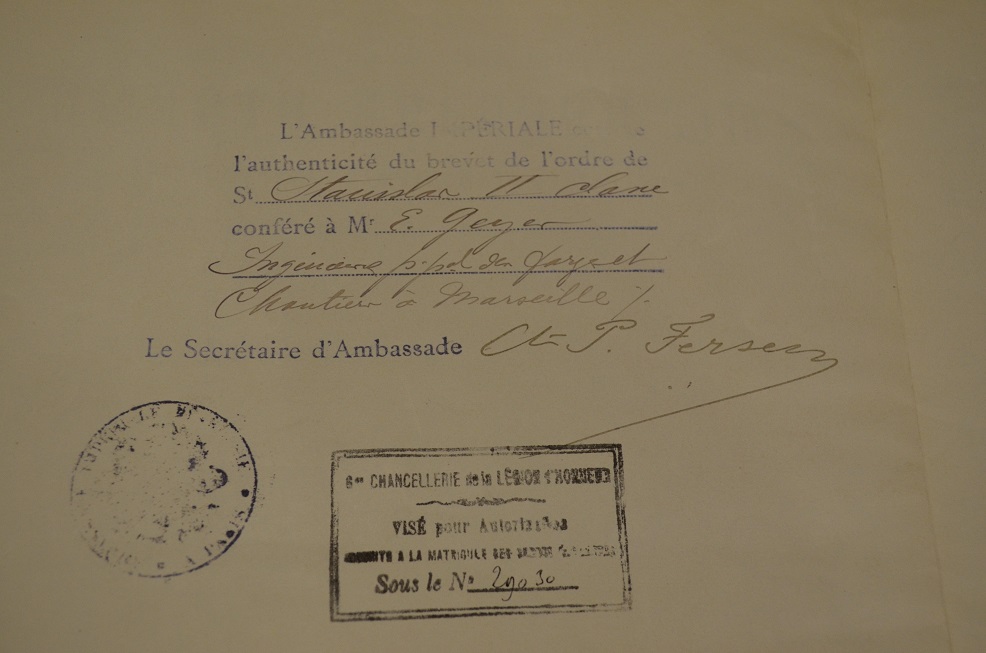 L'Ambassade IMPÉRIALE
l'authenticité du brevet de l'ordre de
St Stanislas II classe
conféré à Mr E. Geyer
Ingénieur p.pal des forges et
Chantiers à Marseille ./.
Le Secrétaire d'Ambassade Cte P. Fersen
Gde CHANCELLERIE de la LÉGION d'HONNEUR
VISÉ pour Autorisation
A LA MATRICULE DES
Sous le No 29030
A PARIS